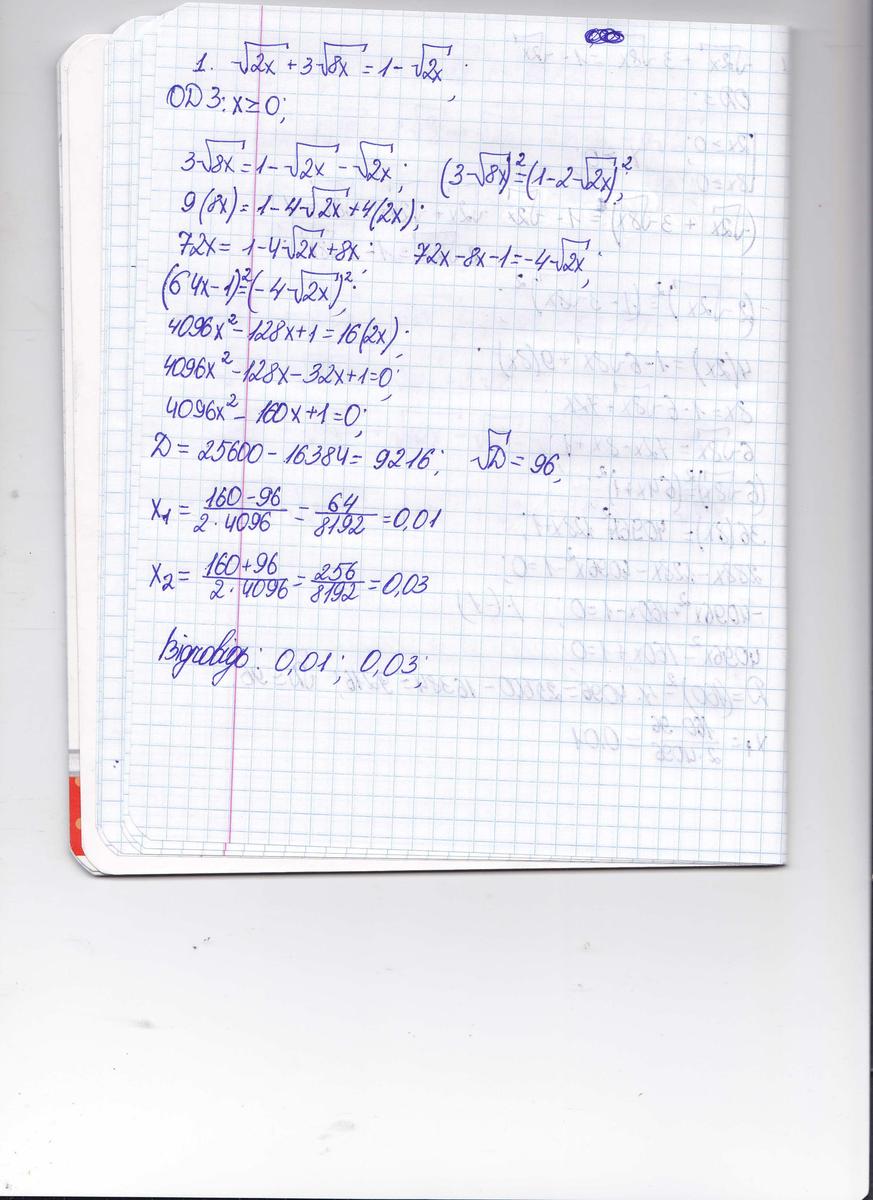 1. √2x + 3√8x = 1 - √2x ;
ОДЗ: x ≥ 0;
3√8x = 1 - √2x - √2x ; (3√8x)² = (1 - 2√2x)²;
9(8x) = 1 - 4√2x + 4(2x);
72x = 1 - 4√2x + 8x ; 72x - 8x - 1 = -4√2x ;
(64x - 1)² = (-4√2x)²;
4096x² - 128x + 1 = 16(2x) ;
4096x² - 128x - 32x + 1 = 0;
4096x² - 160x + 1 = 0;
D = 25600 - 16384 = 9216; √D = 96;
x₁ = (160 - 96)/(2·4096) = 64/8192 = 0,01
x₂ = (160 + 96)/(2·4096) = 256/8192 = 0,03
Відповідь: 0,01 ; 0,03;